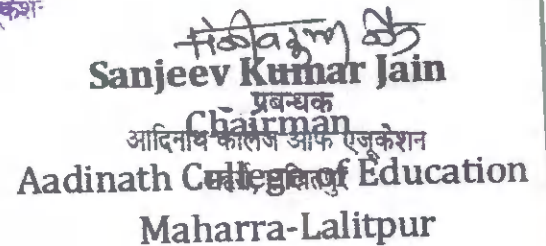 संजीव कुमार जैन
Sanjeev Kumar Jain
प्रबन्धक
Chairman
आदिनाथ कॉलेज ऑफ एजूकेशन
Aadinath College of Education
महर्रा, ललितपुर
Maharra-Lalitpur